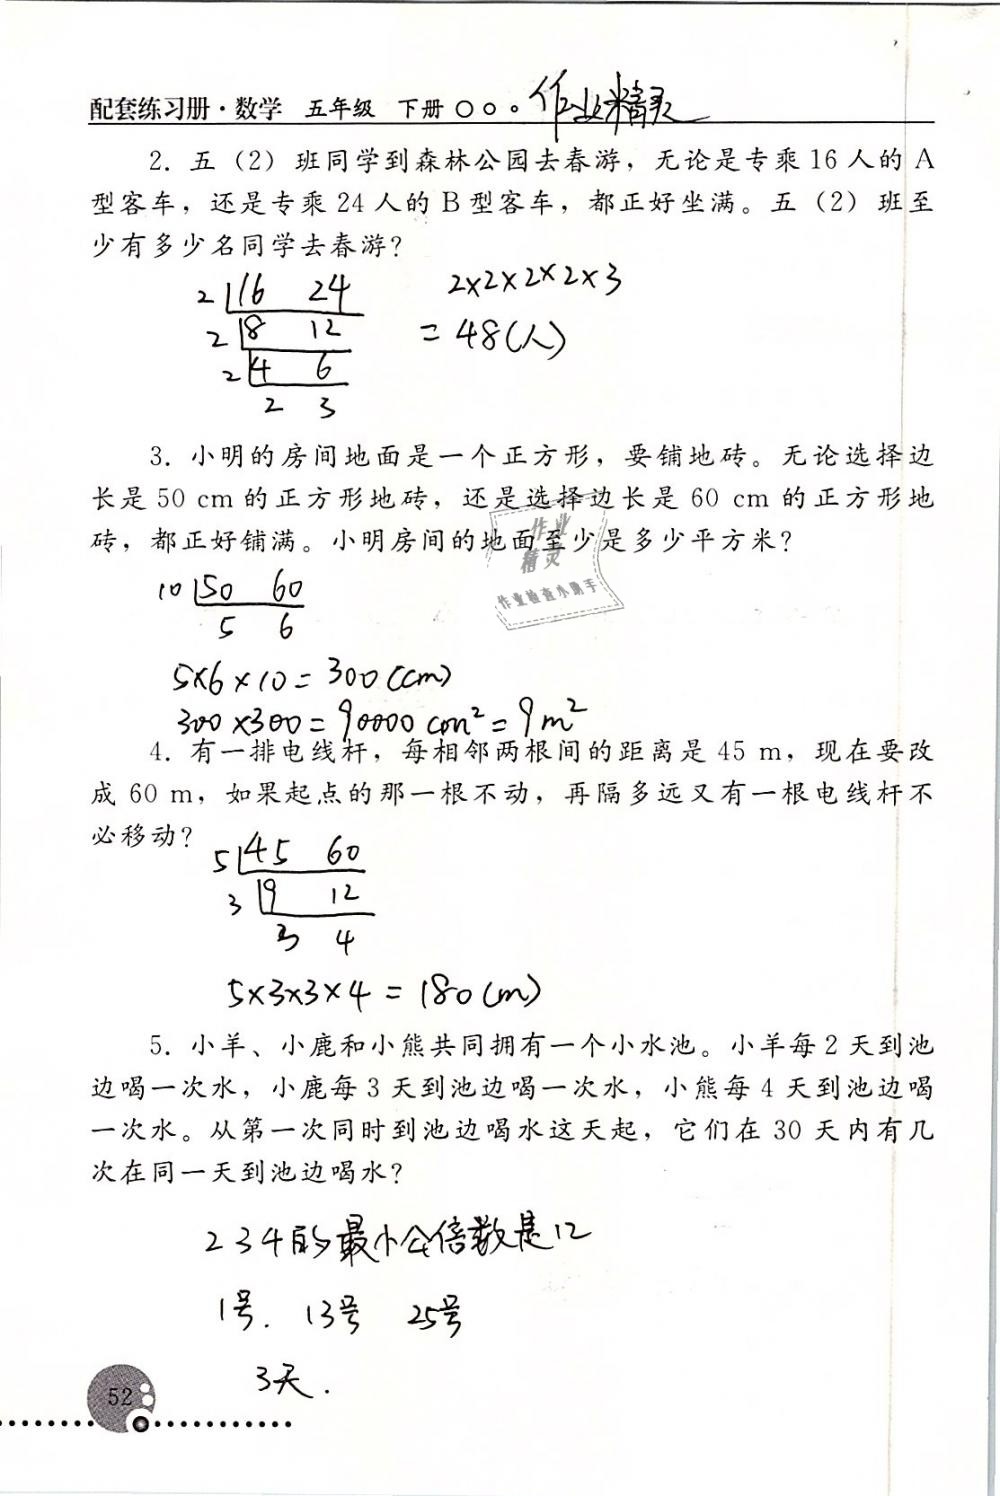 配套练习册·数学 五年级 下册 作业精灵
2. 五（2）班同学到森林公园去春游，无论是专乘 16 人的 A
型客车，还是专乘 24 人的 B 型客车，都正好坐满。五（2）班至
少有多少名同学去春游？
2 16 24 2×2×2×2×3
2 8 12 = 48(人)
2 4 6
2 3
3. 小明的房间地面是一个正方形，要铺地砖。无论选择边
长是 50 cm 的正方形地砖，还是选择边长是 60 cm 的正方形地
砖，都正好铺满。小明房间的地面至少是多少平方米？
作业
精灵
作业检查小助手
10 50 60
5 6
5×6×10=300(cm)
300×300=90000cm²=9m²
4. 有一排电线杆，每相邻两根间的距离是 45 m，现在要改
成 60 m，如果起点的那一根不动，再隔多远又有一根电线杆不
必移动？
5 45 60
3 9 12
3 4
5×3×3×4=180(m)
5. 小羊、小鹿和小熊共同拥有一个小水池。小羊每 2 天到池
边喝一次水，小鹿每 3 天到池边喝一次水，小熊每 4 天到池边喝
一次水。从第一次同时到池边喝水这天起，它们在 30 天内有几
次在同一天到池边喝水？
2 3 4的最小公倍数是12
1号. 13号 25号
3天.
52